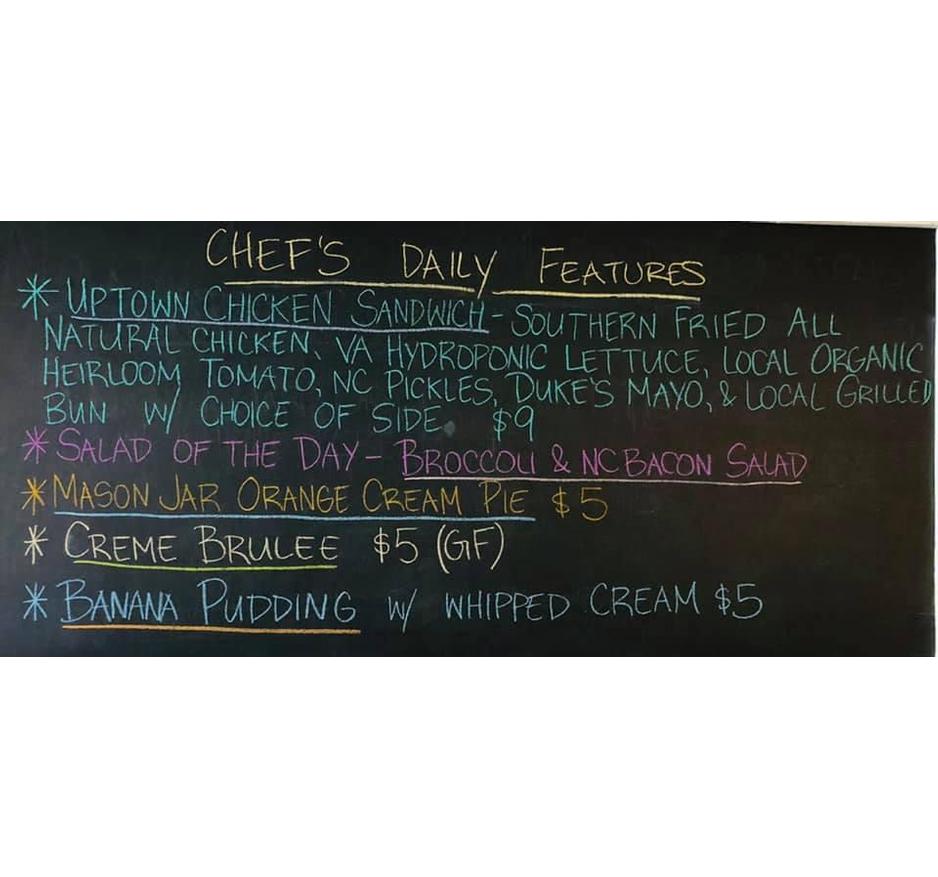 CHEF'S DAILY FEATURES
* UPTOWN CHICKEN SANDWICH - SOUTHERN FRIED ALL
NATURAL CHICKEN, VA HYDROPONIC LETTUCE, LOCAL ORGANIC
HEIRLOOM TOMATO, NC PICKLES, DUKE'S MAYO, & LOCAL GRILLED
BUN W/ CHOICE OF SIDE $9
* SALAD OF THE DAY - BROCCOLI & NC BACON SALAD
* MASON JAR ORANGE CREAM PIE $5
* CREME BRULEE $5 (GF)
* BANANA PUDDING W/ WHIPPED CREAM $5